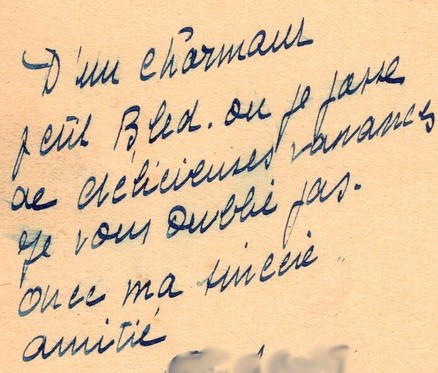 D'un charmant
petit Bled. ou je passe
de délicieuses vacances
Je vous oublie pas.
avec ma sincère
amitié